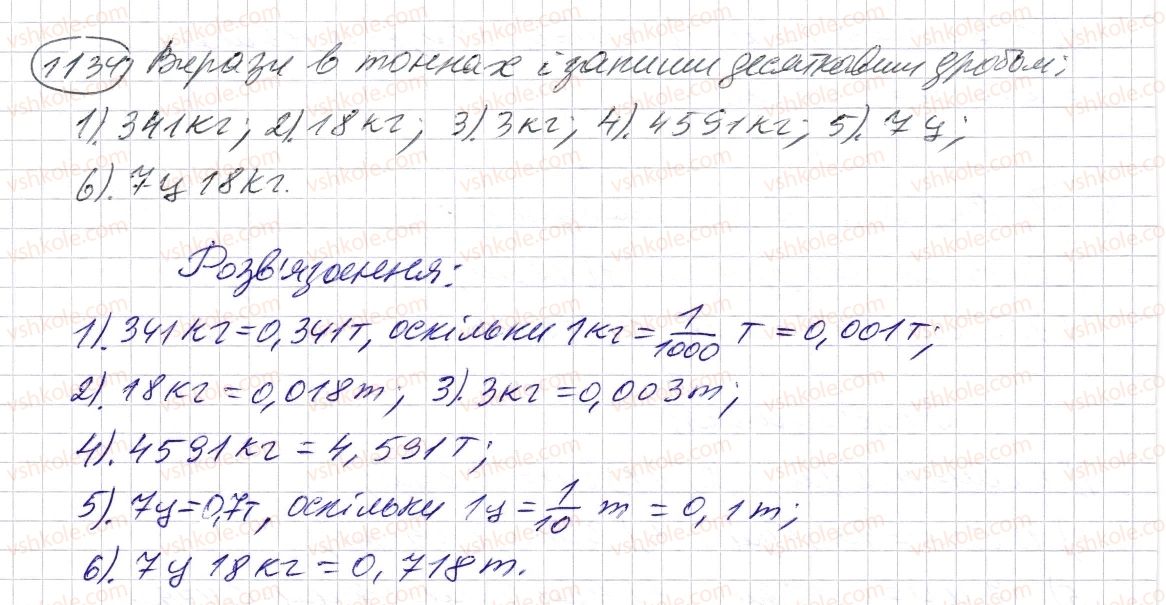 1134) Вирази в тоннах і запиши десятковим дробом:
1). 341кг; 2). 18кг; 3). 3кг; 4). 4591кг; 5). 7ц;
6). 7ц 18кг.
Розв'язання:
1). 341кг = 0,341т, оскільки 1кг = 1/1000 т = 0,001т;
2). 18кг = 0,018т; 3). 3кг = 0,003т;
4). 4591кг = 4,591т;
5). 7ц = 0,7т, оскільки 1ц = 1/10 т = 0,1т;
6). 7ц 18кг = 0,718т.